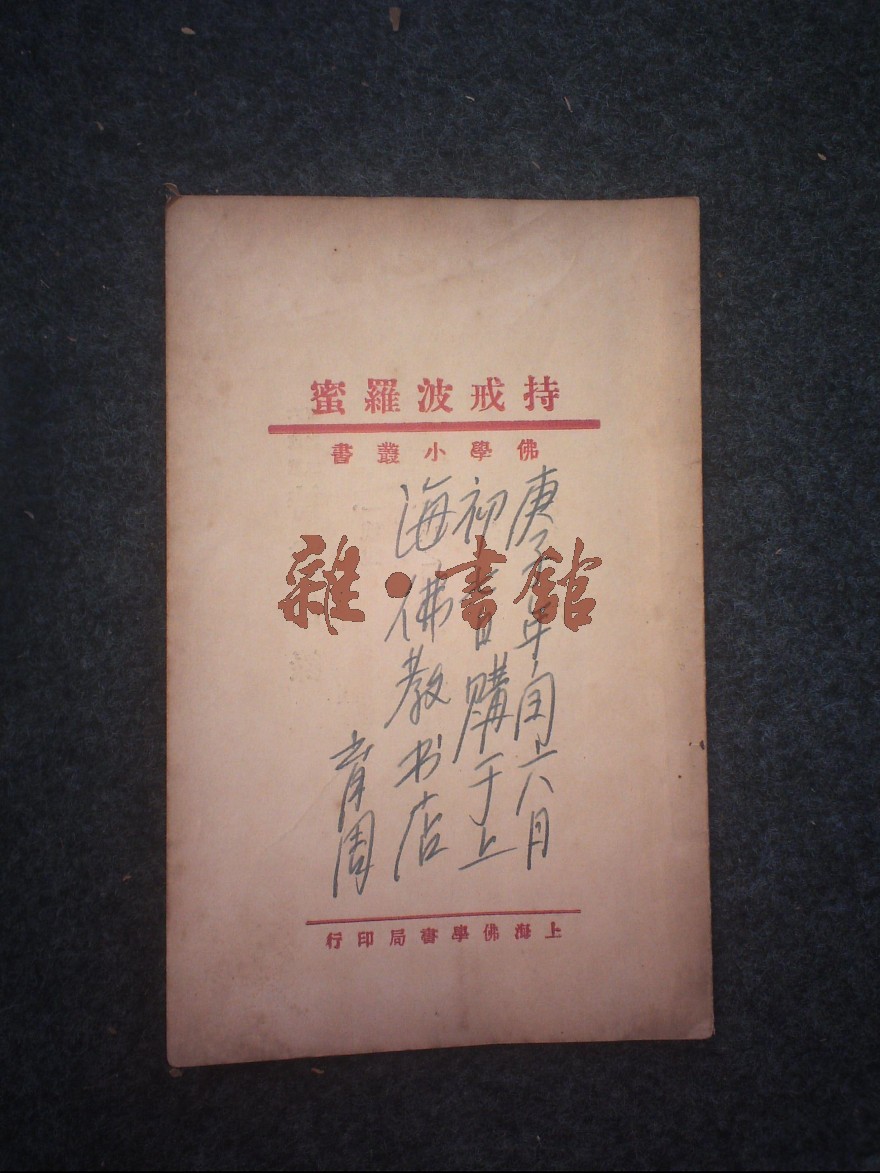 持戒波羅蜜
佛學小叢書
庚子年闰六月
初日購于上
海佛教书店
周
雜·書館
上海佛學書局印行